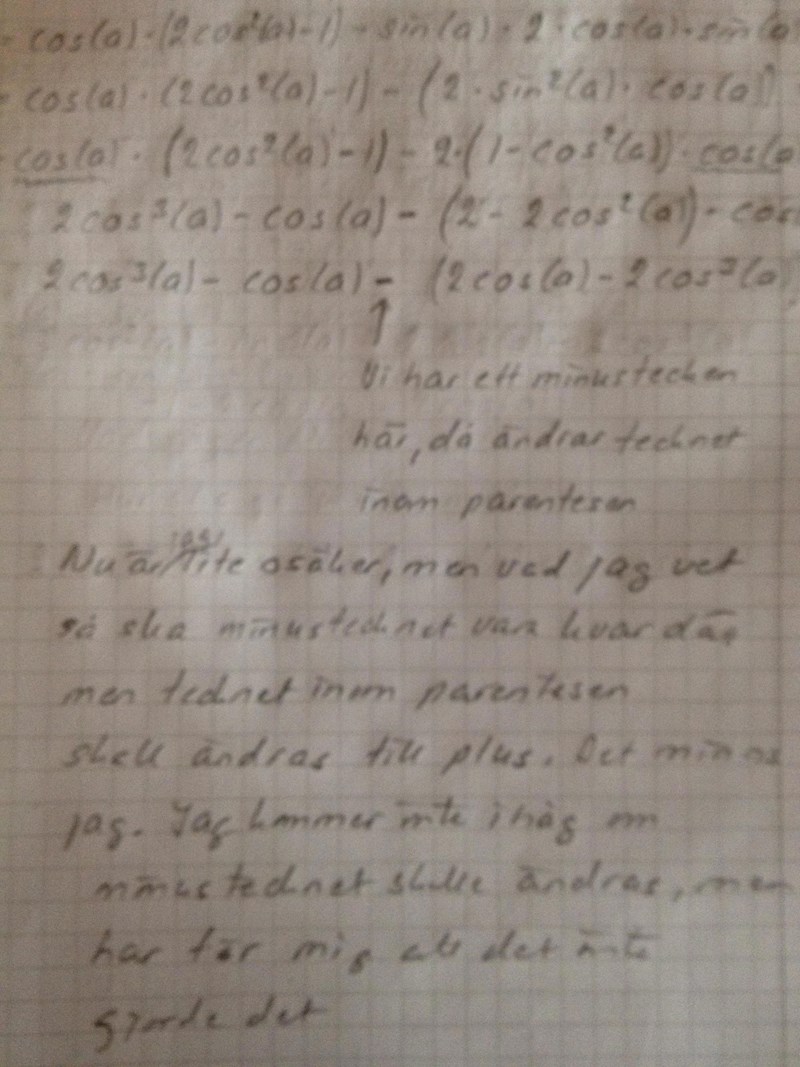 = cos(a)·(2cos²(a)-1) - sin(a)·2·cos(a)·sin(a)
= cos(a)·(2cos²(a)-1) - (2·sin²(a)·cos(a))
cos(a)·(2cos²(a)-1) - 2·(1-cos²(a))·cos(a
2cos³(a) - cos(a) - (2 - 2cos²(a))·cos
2cos³(a) - cos(a) - (2cos(a) - 2cos³(a)
↑
Vi har ett minustecken
här, då ändras tecknet
inom parentesen
Nu är jag lite osäker, men vad jag vet
så ska minustecknet vara kvar där
men tecknet inom parentesen
skall ändras till plus. Det minns
jag. Jag kommer inte ihåg om
minustecknet skulle ändras, men
har för mig att det inte
gjorde det